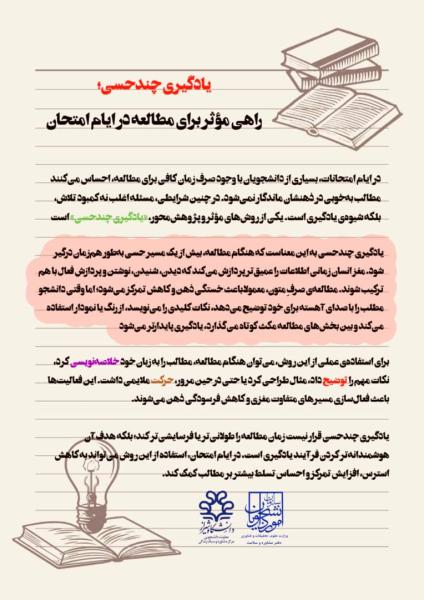 یادگیری چندحسی؛
راهی مؤثر برای مطالعه در ایام امتحان
در ایام امتحانات، بسیاری از دانشجویان با وجود صرف زمان کافی برای مطالعه، احساس می‌کنند
مطالب به‌خوبی در ذهنشان ماندگار نمی‌شود. در چنین شرایطی، مسئله اغلب نه کمبود تلاش،
بلکه شیوه‌ی یادگیری است. یکی از روش‌های مؤثر و پژوهش‌محور، «یادگیری چندحسی» است
یادگیری چندحسی به این معناست که هنگام مطالعه، بیش از یک مسیر حسی به‌طور هم‌زمان درگیر
شود. مغز انسان زمانی اطلاعات را عمیق‌تر پردازش می‌کند که دیدن، شنیدن، نوشتن و پردازش فعال با هم
ترکیب شوند. مطالعه‌ی صرفِ متون، معمولا باعث خستگی ذهن و کاهش تمرکز می‌شود؛ اما وقتی دانشجو
مطلب را با صدای آهسته برای خود توضیح می‌دهد، نکات کلیدی را می‌نویسد، از رنگ یا نمودار استفاده
می‌کند و بین بخش‌های مطالعه مکث کوتاه می‌گذارد، یادگیری پایدارتر می‌شود
برای استفاده‌ی عملی از این روش، می‌توان هنگام مطالعه، مطالب را به زبان خود خلاصه‌نویسی کرد،
نکات مهم را توضیح داد، مثال طراحی کرد یا حتی در حین مرور، حرکت ملایمی داشت. این فعالیت‌ها
باعث فعال‌سازی مسیرهای متفاوت مغزی و کاهش فرسودگی ذهن می‌شوند.
یادگیری چندحسی قرار نیست زمان مطالعه را طولانی‌تر یا فرسایشی‌تر کند؛ بلکه هدف آن
هوشمندانه‌تر کردن فرآیند یادگیری است. در ایام امتحان، استفاده از این روش می‌تواند به کاهش
استرس، افزایش تمرکز و احساس تسلط بیشتر بر مطالب کمک کند.
سازمان امور دانشجویان
وزارت علوم، تحقیقات و فناوری
دفتر مشاوره و سلامت
دانشگاه شیراز
معاونت دانشجویی
مرکز مشاوره و سبک زندگی